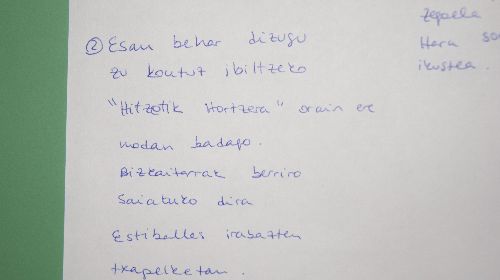 ② Esan behar dizugu
zu kontuz ibiltzeko
"Hitzetik Hortzera" orain ere
modan badago.
Bizkaitarrak berriro
Saiatuko dira
Estiballes irabazten
txapelketan.
zegoela
Hara
ikustea.